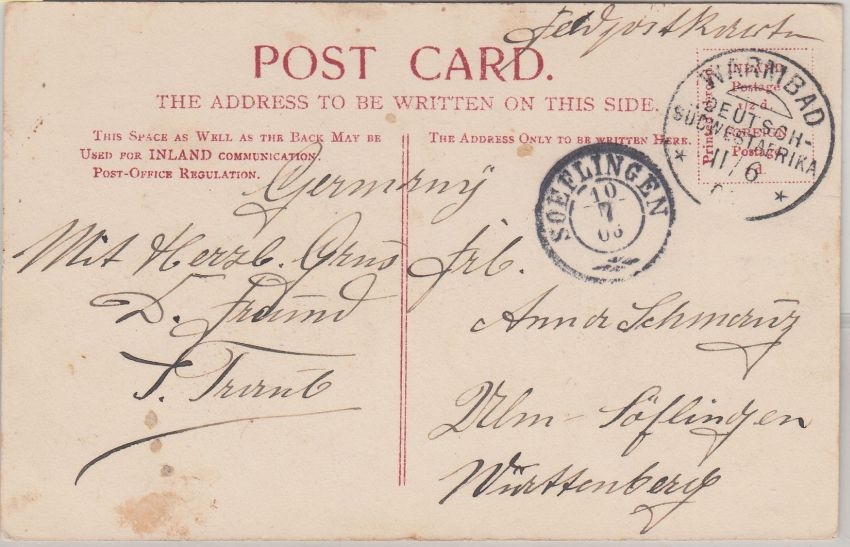 Feldpostkarte
POST CARD.
THE ADDRESS TO BE WRITTEN ON THIS SIDE.
THIS SPACE AS WELL AS THE BACK MAY BE
USED FOR INLAND COMMUNICATION.
POST-OFFICE REGULATION.
THE ADDRESS ONLY TO BE WRITTEN HERE.
INLAND
Postage
1/2 d.
FOREIGN
Postage
d.
WARMBAD
DEUTSCH-
SÜDWESTAFRIKA
11/6
SOEFLINGEN
10
7
06
Germany
Mit Herzl. Grus
D. Freund
Frl.
Anna Schmauz
Ulm-Söflingen
Württemberg